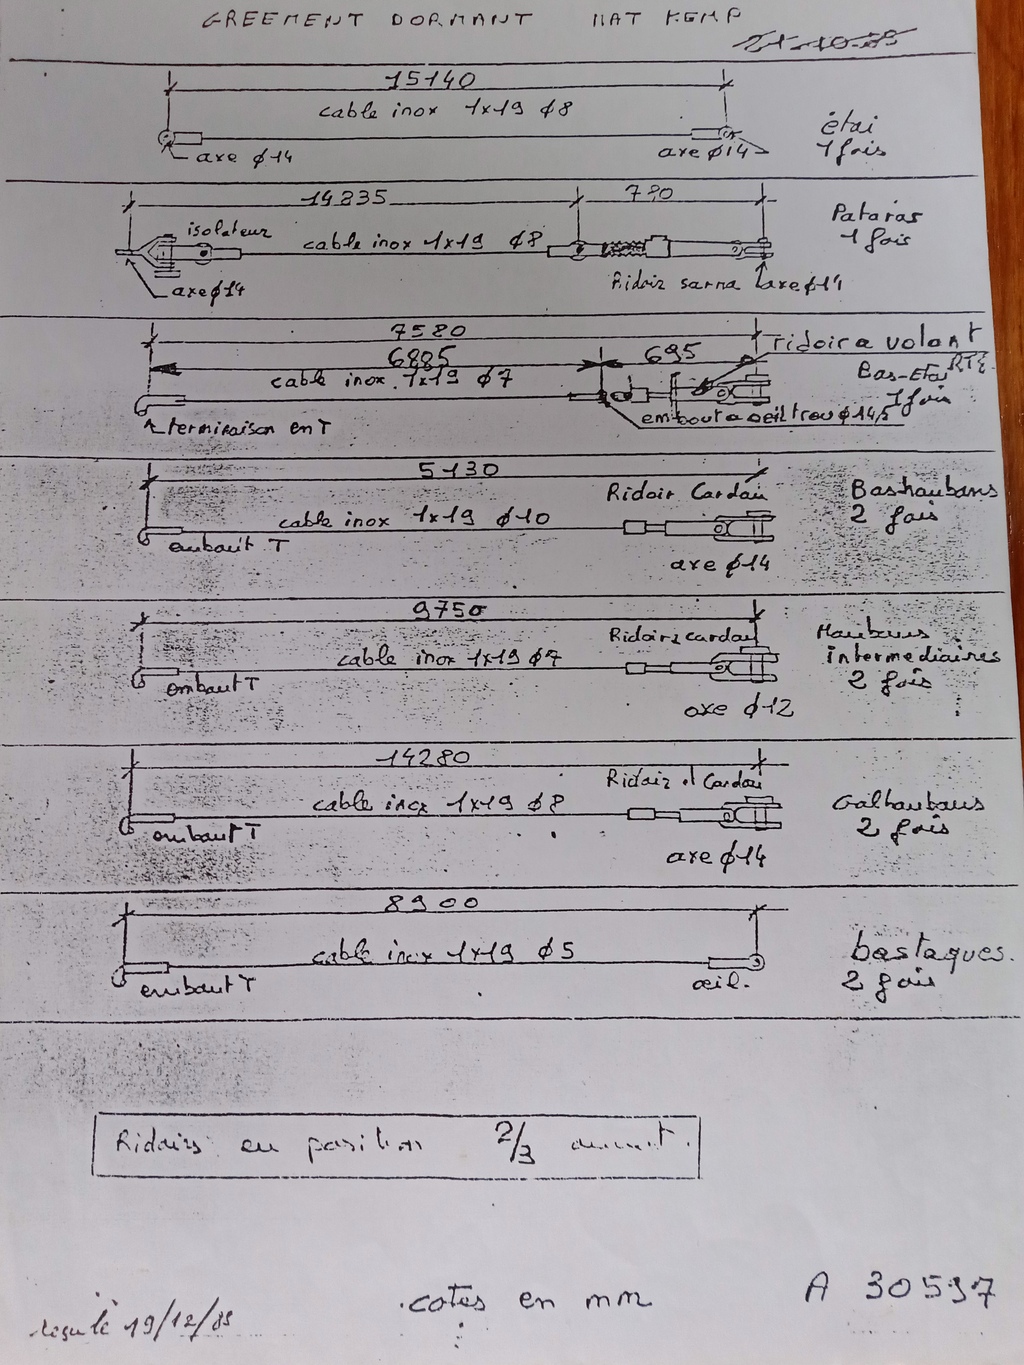 GREEMENT DORMANT MAT KEMP
15140
cable inox 1x19 φ8
axe φ14
axe φ14
étai
1 fois
14835
780
isolateur
cable inox 1x19 φ8
axe φ14
Ridoir sarma
axe φ14
Pataras
1 fois
7580
6885
695
ridoir a volant
cable inox 1x19 φ7
Bas-Etai
1 fois
terminaison en T
embout a oeil trou φ14,5
5130
Ridoir Cardan
cable inox 1x19 φ10
embout T
axe φ14
Bas haubans
2 fois
9750
Ridoir cardan
cable inox 1x19 φ7
embout T
axe φ12
Haubans
intermediaires
2 fois
14280
Ridoir Cardan
cable inox 1x19 φ8
embout T
axe φ14
Galhaubans
2 fois
8900
cable inox 1x19 φ5
embout T
œil.
bastaques.
2 fois
Ridoirs en position 2/3
cotes en mm
A 30597
reçu le 19/12/85